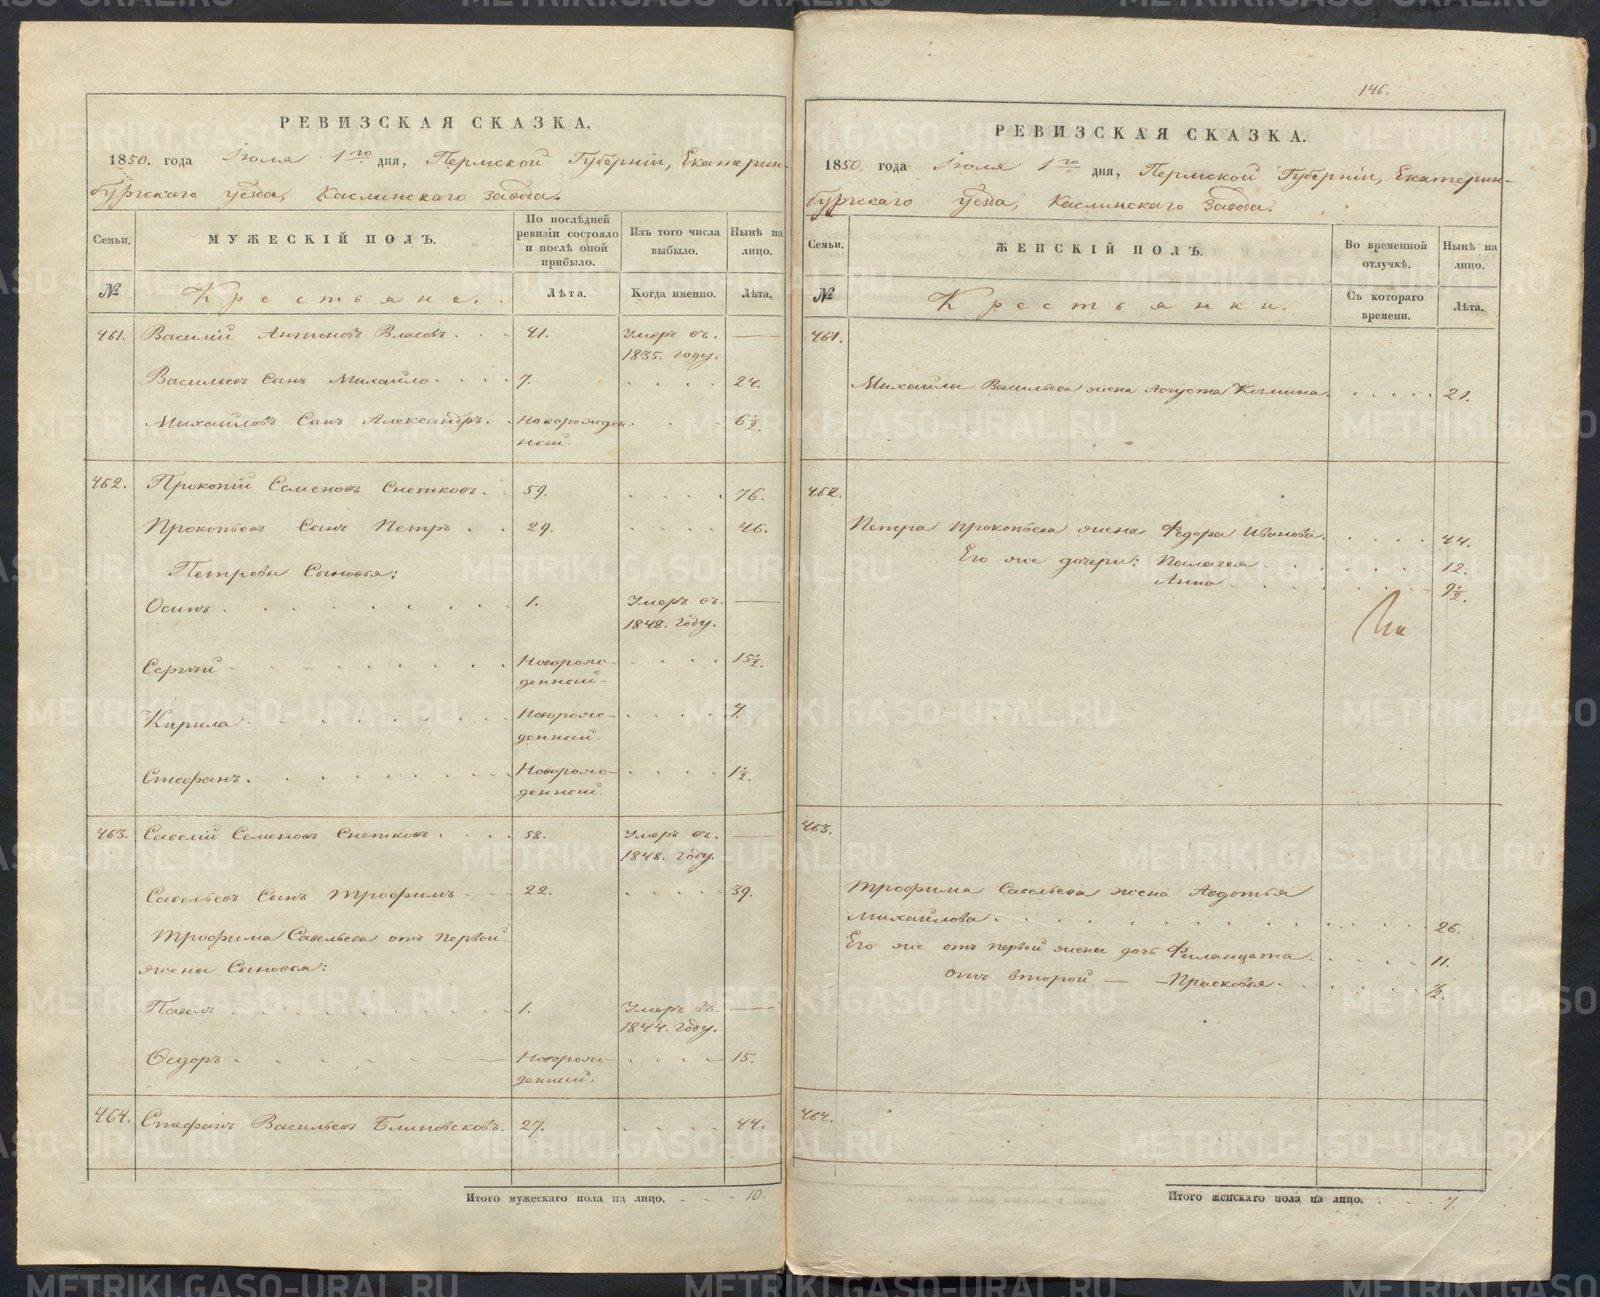 РЕВИЗСКАЯ СКАЗКА.
1850. года Іюля 1го дня, Пермской Губерніи, Екатерин-
бургскаго уѣзда, Каслинскаго завода.
Семьи.
МУЖЕСКІЙ ПОЛЪ.
По послѣдней
ревизіи состояло
и послѣ оной
прибыло.
Изъ того числа
выбыло.
Нынѣ на
лицо.
№ Крестьяне. Лѣта. Когда именно. Лѣта.
461. Василій Антоновъ Власовъ. 41. Умеръ въ. —
1835. году.
Васильевъ Сынъ Михайло. 7. 24.
Михайловъ Сынъ Александръ. Новорожден- 6½.
ный.
462. Прокопій Семеновъ Снетковъ. 59. 76.
Прокопьевъ Сынъ Петръ. 29. 46.
Петровы Сыновья:
Осипъ. 1. Умеръ въ. —
1848. Году.
Сергѣй Новорож- 15½.
денный.
Кирила Новорож- 7.
денный.
Стефанъ. Новорож- 1½.
денный.
463. Савелій Семеновъ Снетковъ. 58. Умеръ въ. —
1848. году.
Савельевъ Сынъ Трофимъ. 22. 39.
Трофима Савельева отъ первой
жены Сыновья:
Павелъ 1. Умеръ въ. —
1844. году.
Ѳедоръ Новорож- 15.
денный.
464. Стефанъ Васильевъ Блиновсковъ. 27. 44.
Итого мужескаго пола на лицо. 10.
146.
РЕВИЗСКАЯ СКАЗКА.
1850. года Іюля 1го дня, Пермской Губерніи, Екатерин-
бургскаго уѣзда, Каслинскаго Завода.
Семьи.
ЖЕНСКІЙ ПОЛЪ.
Во временной
отлучкѣ.
Нынѣ на
лицо.
№ Крестьянки. Съ котораго
времени.
Лѣта.
461.
Михайлы Васильева жена Августа Козмина. 21.
462.
Петра Прокопьева жена Федора Иванова. 44.
Его же дочери: Палагея 12.
Анна. 9½.
463.
Трофима Савельева жена Авдотья
Михайлова. 26.
Его же отъ первой жены дочь Филанцата 11.
отъ второй. — Прасковья. ½.
464.
Итого женскаго пола на лицо. 7.
METRIKI.GASO-URAL.RU